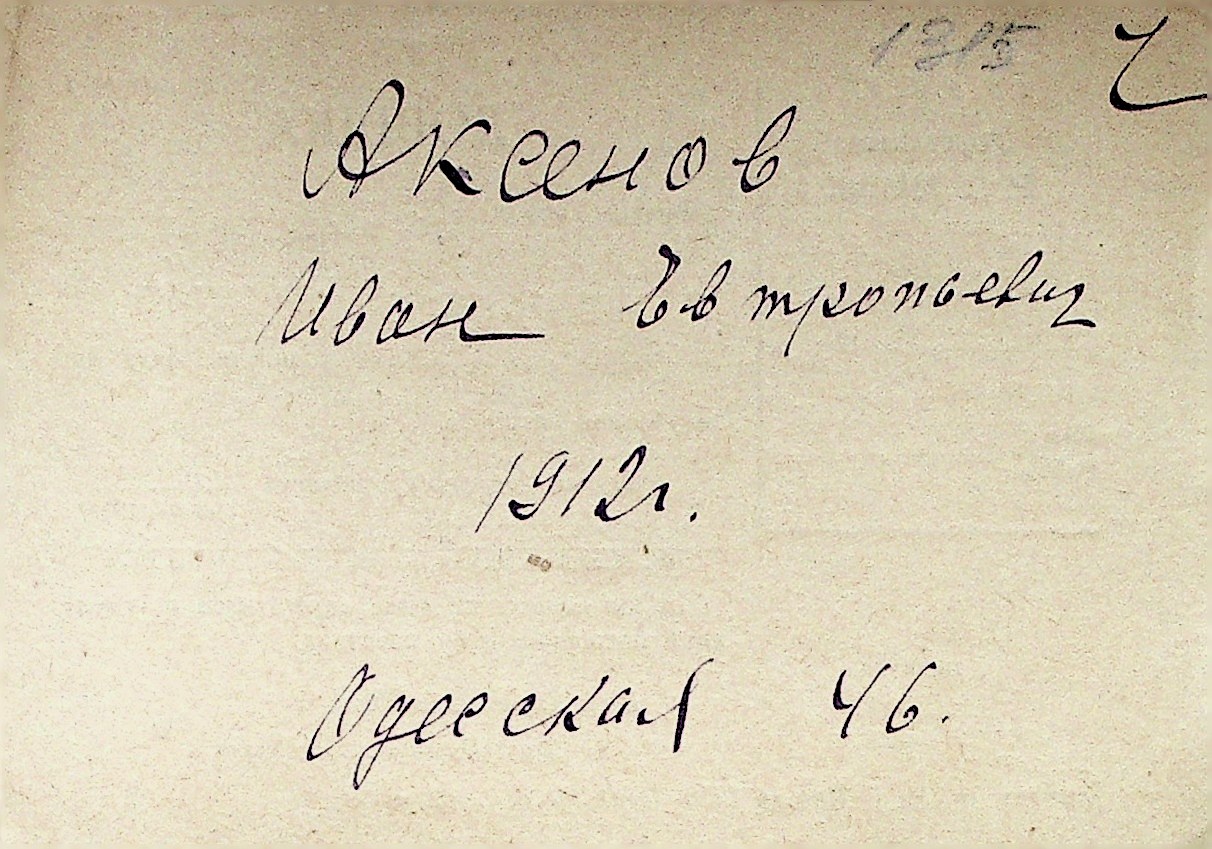 1315 ч
Аксенов
Иван Евтропьевич
1912г.
Одесская 46.